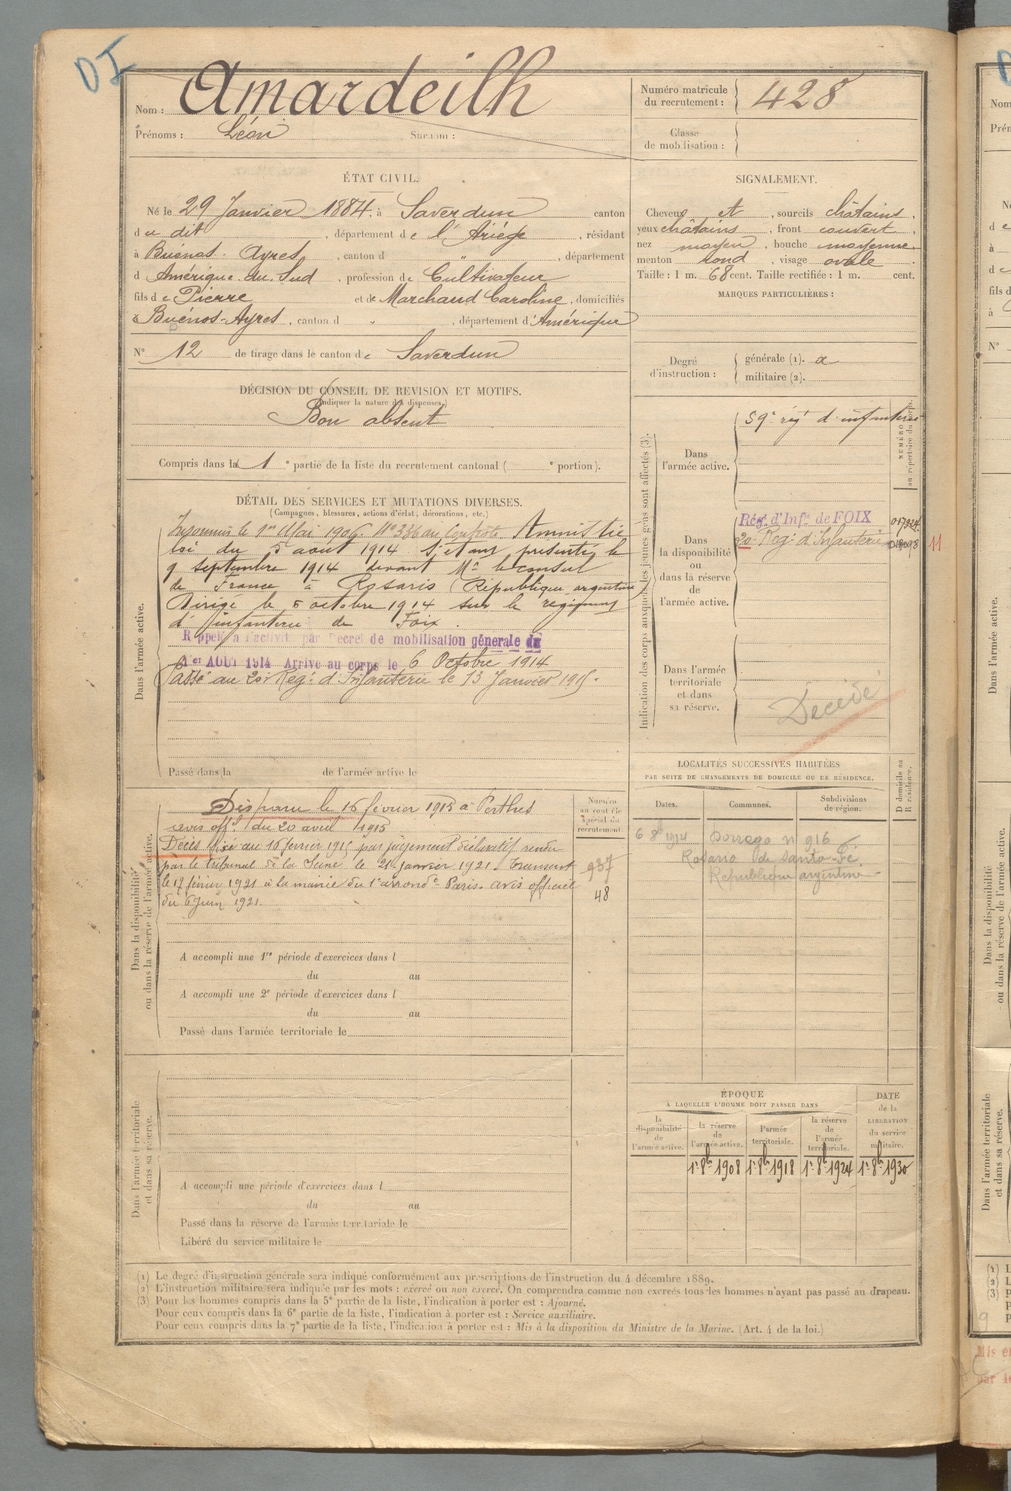 DI
Nom : Amardeilh
Prénoms : Léon Surnom :
Numéro matricule du recrutement : 428
Classe de mobilisation :
ÉTAT CIVIL.
Né le 29 Janvier 1884, à Saverdun canton
d u dit, département de l'Ariège, résidant
à Buénos-Ayres, canton d , département
d Amérique du Sud, profession de Cultivateur
fils de Pierre et de Marchaud Caroline, domiciliés
à Buénos-Ayres, canton d " , département d'Amérique
N° 12 de tirage dans le canton de Saverdun
SIGNALEMENT.
Cheveux et , sourcils châtains,
yeux châtains, front couvert,
nez moyen, bouche moyenne,
menton rond, visage ovale.
Taille : 1 m. 68 cent. Taille rectifiée : 1 m. cent.
MARQUES PARTICULIÈRES :
Degré d'instruction : générale (1). a
militaire (2).
DÉCISION DU CONSEIL DE REVISION ET MOTIFS.
(Indiquer la nature des dispenses.)
Bon absent
Compris dans la 1e partie de la liste du recrutement cantonal ( e portion).
DÉTAIL DES SERVICES ET MUTATIONS DIVERSES.
(Campagnes, blessures, actions d'éclat, décorations, etc.)
Dans l'armée active.
Insoumis le 1er Mai 1906. N° 336 au Contrôle. Amnistié
loi du 5 aout 1914 S'étant présenté le
9 septembre 1914 devant Mr le consul
de France à Rosario (République argentine)
Dirigé le 5 octobre 1914 sur le régiment
d'infanterie de Foix.
Rappelé à l'activité par Décret de mobilisation générale du
1er AOUT 1914 Arrivé au corps le 6 Octobre 1914
Passé au 20e Regt d'Infanterie le 13 Janvier 1915.
Passé dans la de l'armée active le
Indication des corps auxquels les jeunes gens sont affectés (3).
NUMÉRO
au répertoire du corps.
Dans l'armée active.
59e régt d'infanterie
Dans la disponibilité ou dans la réserve de l'armée active.
Régt d'Infie de FOIX
20e Regt d'Infanterie
11
Dans l'armée territoriale et dans sa réserve.
Décédé
Dans la disponibilité
ou dans la réserve de l'armée active.
Numéro au contrôle spécial du recrutement
Disparu le 16 février 1915 à Perthes
avis offl du 20 avril 1915
Décès fixé au 16 février 1915 par jugement déclaratif rendu
par le tribunal de la Seine le 21 janvier 1921. Transcrit
le 17 février 1921 à la mairie du 1er arrondt Paris. avis officiel
du 6 juin 1921.
937
48
A accompli une 1re période d'exercices dans l
du au
A accompli une 2e période d'exercices dans l
du au
Passé dans l'armée territoriale le
LOCALITÉS SUCCESSIVES HABITÉES
PAR SUITE DE CHANGEMENTS DE DOMICILE OU DE RÉSIDENCE.
Dates. Communes. Subdivisions de région. D domicile ou R résidence.
6 8 1914 Dorrego n° 916
Rosario de Santo-Fé.
République argentine
Dans l'armée territoriale
et dans sa réserve.
A accompli une période d'exercices dans l
du au
Passé dans la réserve de l'armée territoriale le
Libéré du service militaire le
ÉPOQUE
À LAQUELLE L'HOMME DOIT PASSER DANS
la disponibilité de l'armée active. la réserve de l'armée active. l'armée territoriale. la réserve de l'armée territoriale. DATE de la LIBÉRATION du service militaire.
1er 8bre 1908 1er 8bre 1918 1er 8bre 1924 1er 8bre 1930
(1) Le degré d'instruction générale sera indiqué conformément aux prescriptions de l'instruction du 4 décembre 1889.
(2) L'instruction militaire sera indiquée par les mots : exercé ou non exercé. On comprendra comme non exercés tous les hommes n'ayant pas passé au drapeau.
(3) Pour les hommes compris dans la 5e partie de la liste, l'indication à porter est : Ajourné.
Pour ceux compris dans la 6e partie de la liste, l'indication à porter est : Service auxiliaire.
Pour ceux compris dans la 7e partie de la liste, l'indication à porter est : Mis à la disposition du Ministre de la Marine. (Art. 4 de la loi.)